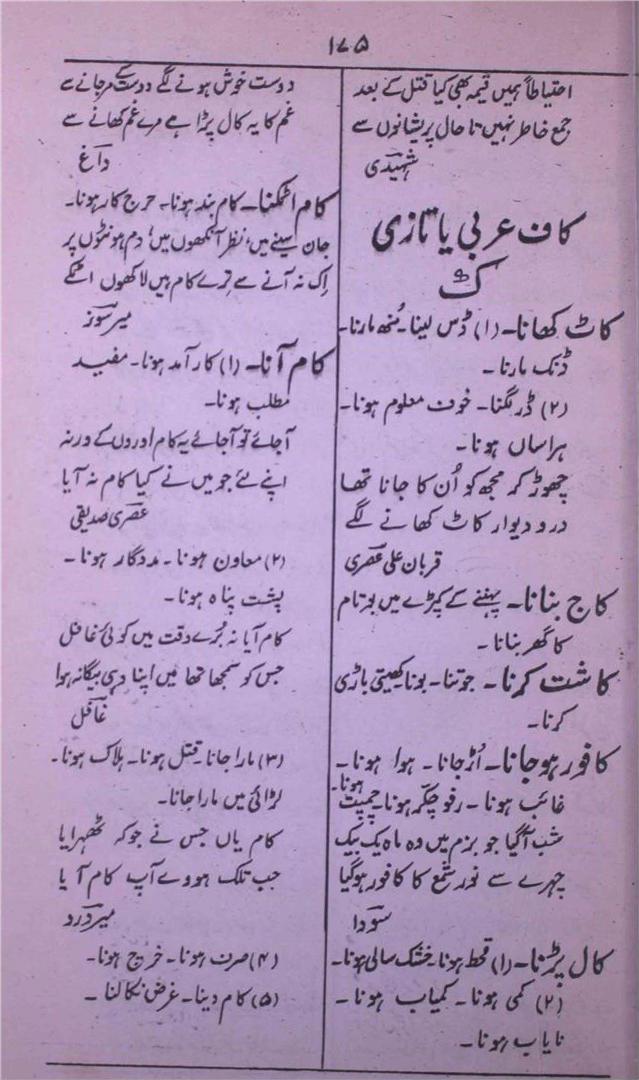 ۱۷۵
احتیاطاً ہمیں قیمہ بھی کیا قتل کے بعد
جمع خاطر نہیں تا حال پریشانوں سے
شہیدی
کاف عربی یا تازی
ک
کاٹ کھانا۔ (۱) ڈس لینا۔ مُنھ مارنا۔
ڈنک مارنا۔
(۲) ڈر لگنا۔ خوف معلوم ہونا۔
ہراساں ہونا۔
چھوڑ کر مجھ کو اُن کا جانا تھا
در و دیوار کاٹ کھانے لگے
قربان علی عصری
کاج بنانا۔ پہننے کے کپڑے میں بوتام
کا گھر بنانا۔
کاشت کرنا۔ جوتنا۔ بونا۔ کھیتی باڑی
کرنا۔
کافور ہو جانا۔ اُڑ جانا۔ ہوا ہونا۔
غائب ہونا۔ رفو چکر ہونا۔ چمپت ہونا۔
شب آگیا جو بزم میں وہ ماہ یک بیک
چہرے سے نور شمع کا کافور ہوگیا
سودا
کال پڑنا۔ (۱) قحط ہونا۔ خشک سالی ہونا۔
(۲) کمی ہونا۔ کمیاب ہونا۔
نایاب ہونا۔
دوست خوش ہونے لگے دوست کے مر جانے سے
غم کا یہ کال پڑا ہے مرے غم کھانے سے
داغ
کام اٹکنا۔ کام بند ہونا۔ حرج کار ہونا۔
جان سینے میں، نظر آنکھوں میں، دم ہونٹوں پر
اِک نہ آنے سے ترے کام ہیں لاکھوں اٹکے
میر سوز
کام آنا۔ (۱) کار آمد ہونا۔ مفید
مطلب ہونا۔
آجائے تو آجائے یہ کام اوروں کے ورنہ
اپنے لئے جو میں نے کیا کام نہ آیا
عصری صدیقی
(۲) معاون ہونا۔ مددگار ہونا۔
پشت پناہ ہونا۔
کام آیا نہ بُرے وقت میں کوئی غافل
جس کو سمجھا تھا میں اپنا وہی بیگانہ ہوا
غافل
(۳) مارا جانا۔ قتل ہونا۔ ہلاک ہونا۔
لڑائی میں مارا جانا۔
کام یاں جس نے جو کہ ٹھہرایا
جب تلک ہووے آپ کام آیا
میر درد
(۴) صرف ہونا۔ خرچ ہونا۔
(۵) کام دینا۔ غرض نکالنا۔